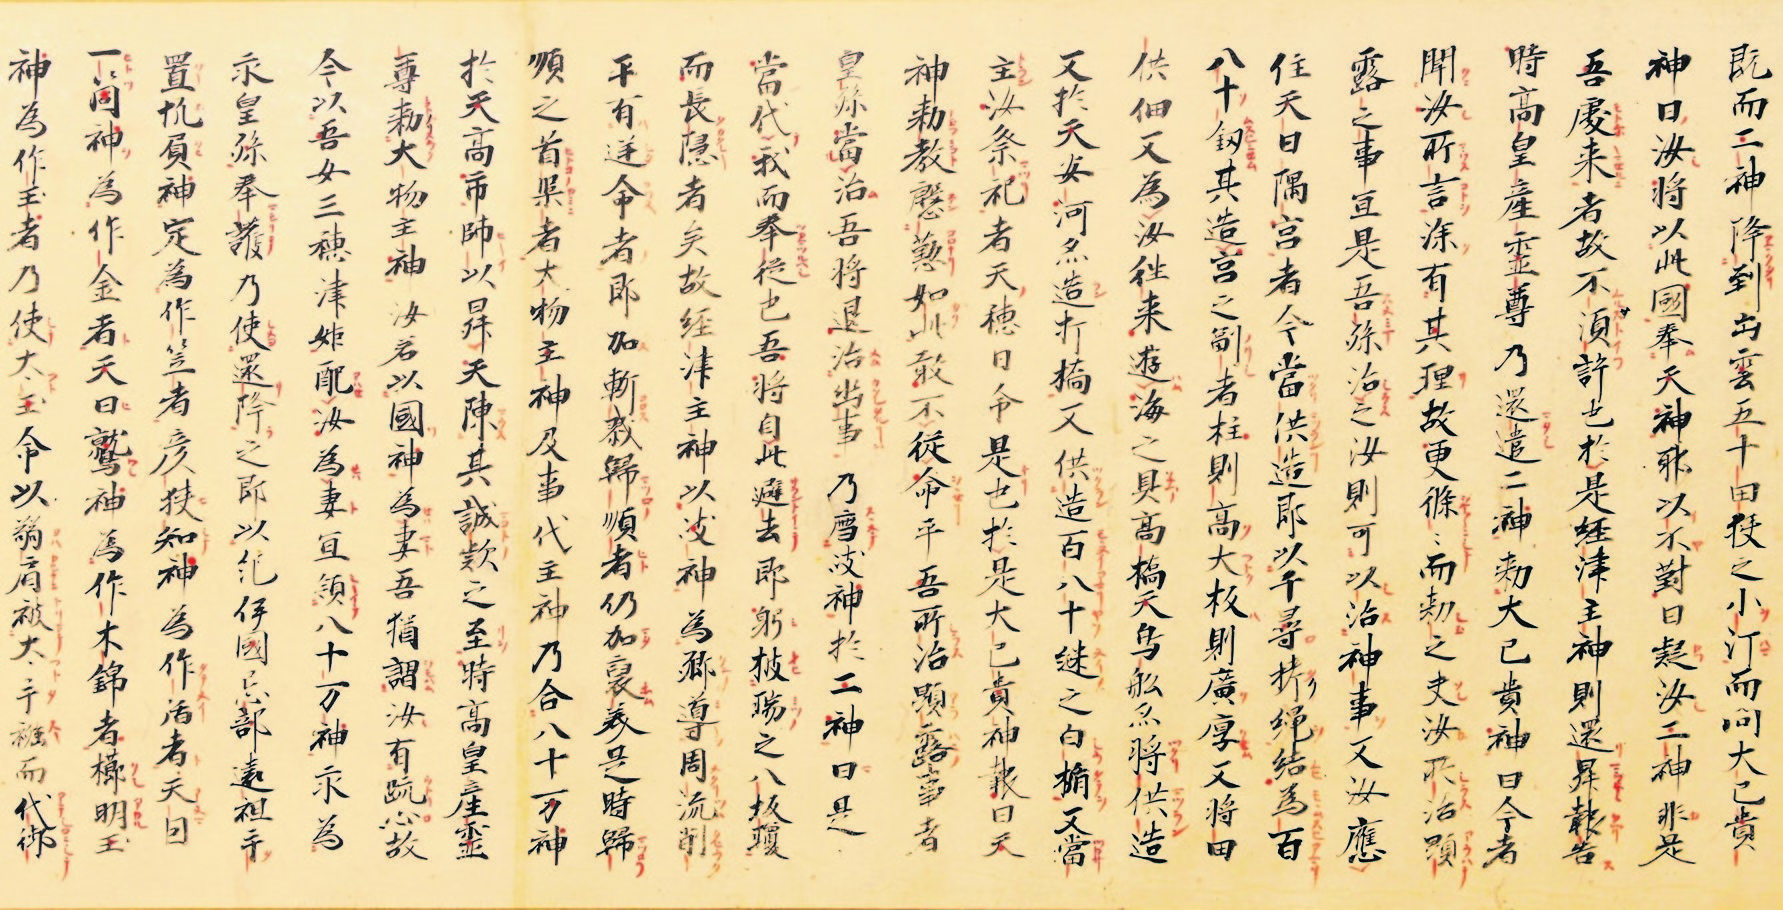 既而二神降到出雲五十田狹之小汀而問大己貴
神曰汝將以此國奉天神耶以不對曰疑汝二神非是
吾處来者故不須許也於是経津主神則還昇報告
時高皇産霊尊乃還遣二神勅大己貴神曰今者
聞汝所言深有其理故更條〻而勅之夫汝所治顕
露之事宜是吾孫治之汝則可以治神事又汝應
住天日隅宮者今當供造即以千尋栲縄結為百
八十紐其造宮之制者柱則高大板則廣厚又將田
供佃又為汝往来遊海之具高橋天鳥舩亦將供造
又於天安河亦造打橋又供造百八十縫之白楯又當
主汝祭祀者天穂日命是也於是大己貴神報曰天
神勅教慇懃如此敢不従命乎吾所治顕露事者
皇孫當治吾將退治幽事乃薦岐神於二神曰是
當代我而奉従也吾將自此避去即躬披瑞之八坂瓊
而長隠者矣故経津主神以岐神為郷導周流削
平有逆命者即加斬戮歸順者仍加褒美是時歸
順之首渠者大物主神及事代主神乃合八十万神
於天高市帥以昇天陳其誠款之至時高皇産霊
尊勅大物主神汝若以國神為妻吾猶謂汝有疏心故
今以吾女三穂津姫配汝為妻宜領八十万神永為
皇孫奉護乃使還降之即以紀伊國忌部遠祖手
置帆負神定為作笠者彦狹知神為作盾者天目
一箇神為作金者天日鷲神為作木綿者櫛明玉
神為作玉者乃使太玉命以弱肩被太手繦而代御